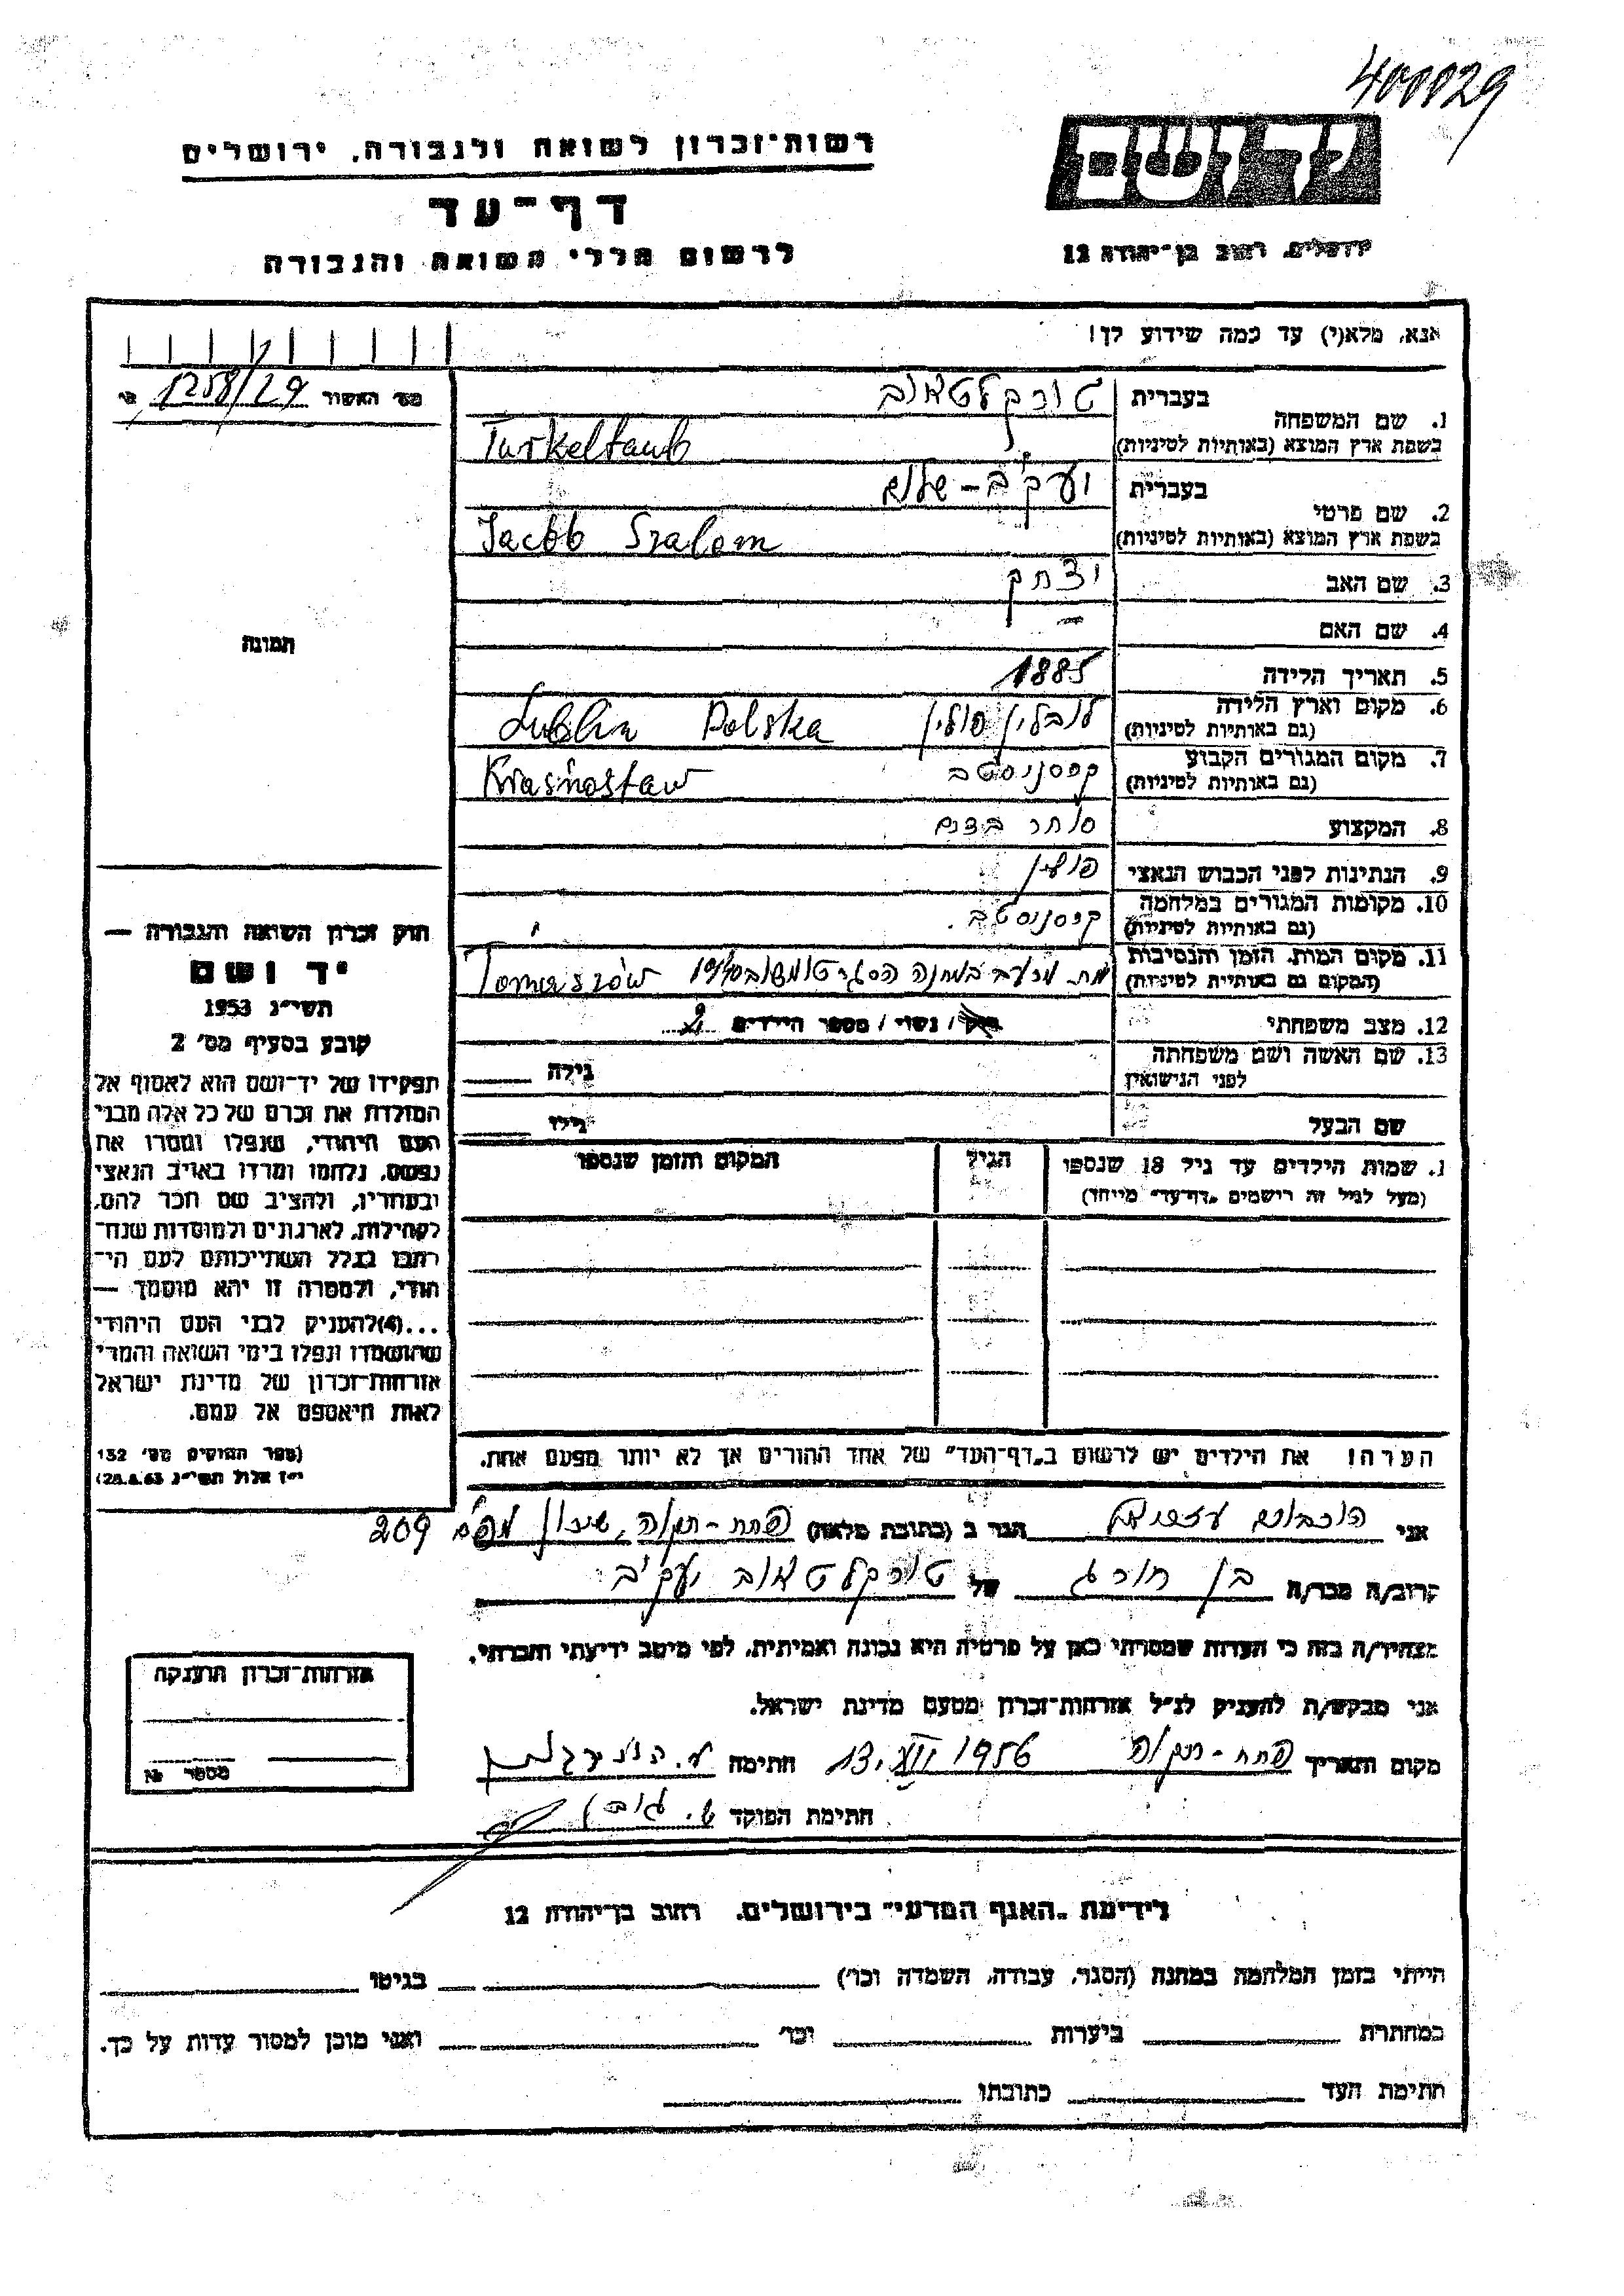 400029
רשות־זכרון לשואה ולגבורה, ירושלים
דף־עד
לרשום חללי השואה והגבורה
יד ושם
ירושלים, רחוב בן־יהודה 12
אנא, מלא(י) עד כמה שידוע לך!
מס׳ האשור 1258/29
1. שם המשפחה
בעברית טורקלטאוב
בשפת ארץ המוצא (באותיות לטיניות) Turkeltaub
2. שם פרטי
בעברית יעקב - שלום
בשפת ארץ המוצא (באותיות לטיניות) Jacob Szalom
3. שם האב יצחק
4. שם האם —
5. תאריך הלידה 1885
6. מקום וארץ הלידה (גם באותיות לטיניות) לובלין פולין Lublin Polska
7. מקום המגורים הקבוע (גם באותיות לטיניות) קרסניסטב Kraśnostaw
8. המקצוע סוחר בצים
9. הנתינות לפני הכבוש הנאצי פולין
10. מקומות המגורים במלחמה (גם באותיות לטיניות) קרסנוסטב.
11. מקום המות, הזמן והנסיבות (המקום גם באותיות לטיניות) מת מרעב במחנה הסגר טומשוב Tomaszów
12. מצב משפחתי רווק / נשוי / מספר הילדים 2
13. שם האשה ושם משפחתה לפני הנישואין
גילה
שם הבעל גילו
תמונה
חוק זכרון השואה והגבורה —
יד ושם
תשי״ג 1953
קובע בסעיף מס׳ 2
תפקידו של יד־ושם הוא לאסוף אל
המולדת את זכרם של כל אלה מבני
העם היהודי, שנפלו ומסרו את
נפשם, נלחמו ומרדו באויב הנאצי
ובעוזריו, ולהציב שם וזכר להם,
לקהילות, לארגונים ולמוסדות שנח־
רבו בגלל השתייכותם לעם הי־
הודי, ולמטרה זו יהא מוסמך —
...(4)להעניק לבני העם היהודי
שהושמדו ונפלו בימי השואה והמרי
אזרחות־זכרון של מדינת ישראל
לאות היאספם אל עמם.
(ספר החוקים מס׳ 132
י״ז אלול תשי״ג 28.8.53)
1. שמות הילדים עד גיל 18 שנספו
(מעל לגיל זה רישמים „דף־עד״ מיוחד)
הגיל
המקום והזמן שנספו
הערה! את הילדים יש לרשום ב„דף־העד״ של אחד ההורים אך לא יותר מפעם אחת.
אני הגר ב (כתובת מלאה) פתח - תקוה, שיכון מפ״ם 209
קרוב/ה מכר/ה בן חורג של טורקלטאוב יעקב
מצהיר/ה בזה כי העדות שמסרתי כאן על פרטיה היא נכונה ואמיתית, לפי מיטב ידיעתי והכרתי.
אני מבקש/ת להעניק לנ״ל אזרחות־זכרון מטעם מדינת ישראל.
מקום ותאריך פתח - תקוה 13.VII 1956 חתימה
חתימת הפוקד
אזרחות־זכרון הוענקה
מספר №
לידיעת „האגף המדעי״ בירושלים, רחוב בן־יהודה 12
הייתי בזמן המלחמה במחנה (הסגר, עבודה, השמדה וכו׳) בגיטו
במחתרת ביערות וכו׳ ואני מוכן למסור עדות על כך.
חתימת העד כתובתו